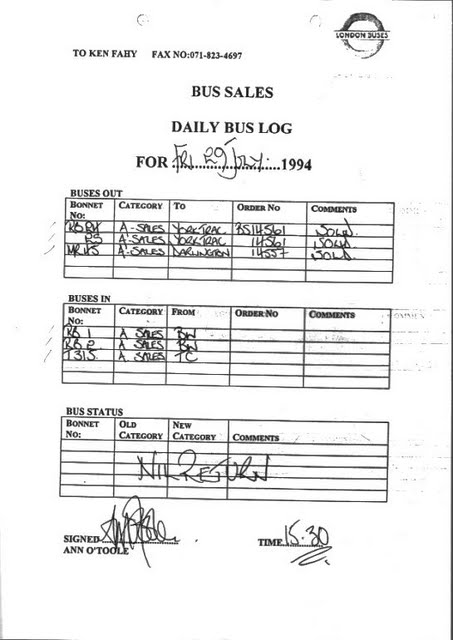 LONDON BUSES
TO KEN FAHY FAX NO:071-823-4697
BUS SALES
DAILY BUS LOG
FOR FRI 29 JULY 1994
BUSES OUT
BONNET NO: CATEGORY TO ORDER NO COMMENTS
A-SALES YORKTRAC BS14561 SOLD
R5 A-SALES YORKTRAC 14561 SOLD
A-SALES DARLINGTON 14557 SOLD
BUSES IN
BONNET NO: CATEGORY FROM ORDER NO COMMENTS
RB 1 A SALES BW
RB 2 A SALES BW
T315 A SALES TC
BUS STATUS
BONNET NO: OLD CATEGORY NEW CATEGORY COMMENTS
NIL RETURN
SIGNED TIME 15.30
ANN O'TOOLE